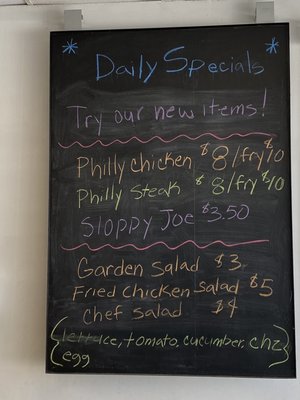 * Daily Specials *
Try our new items!
Philly chicken $8/fry $10
Philly Steak $8/fry $10
Sloppy Joe $3.50
Garden Salad $3
Fried Chicken Salad $5
Chef Salad $4
{lettuce, tomato, cucumber, chz}
egg